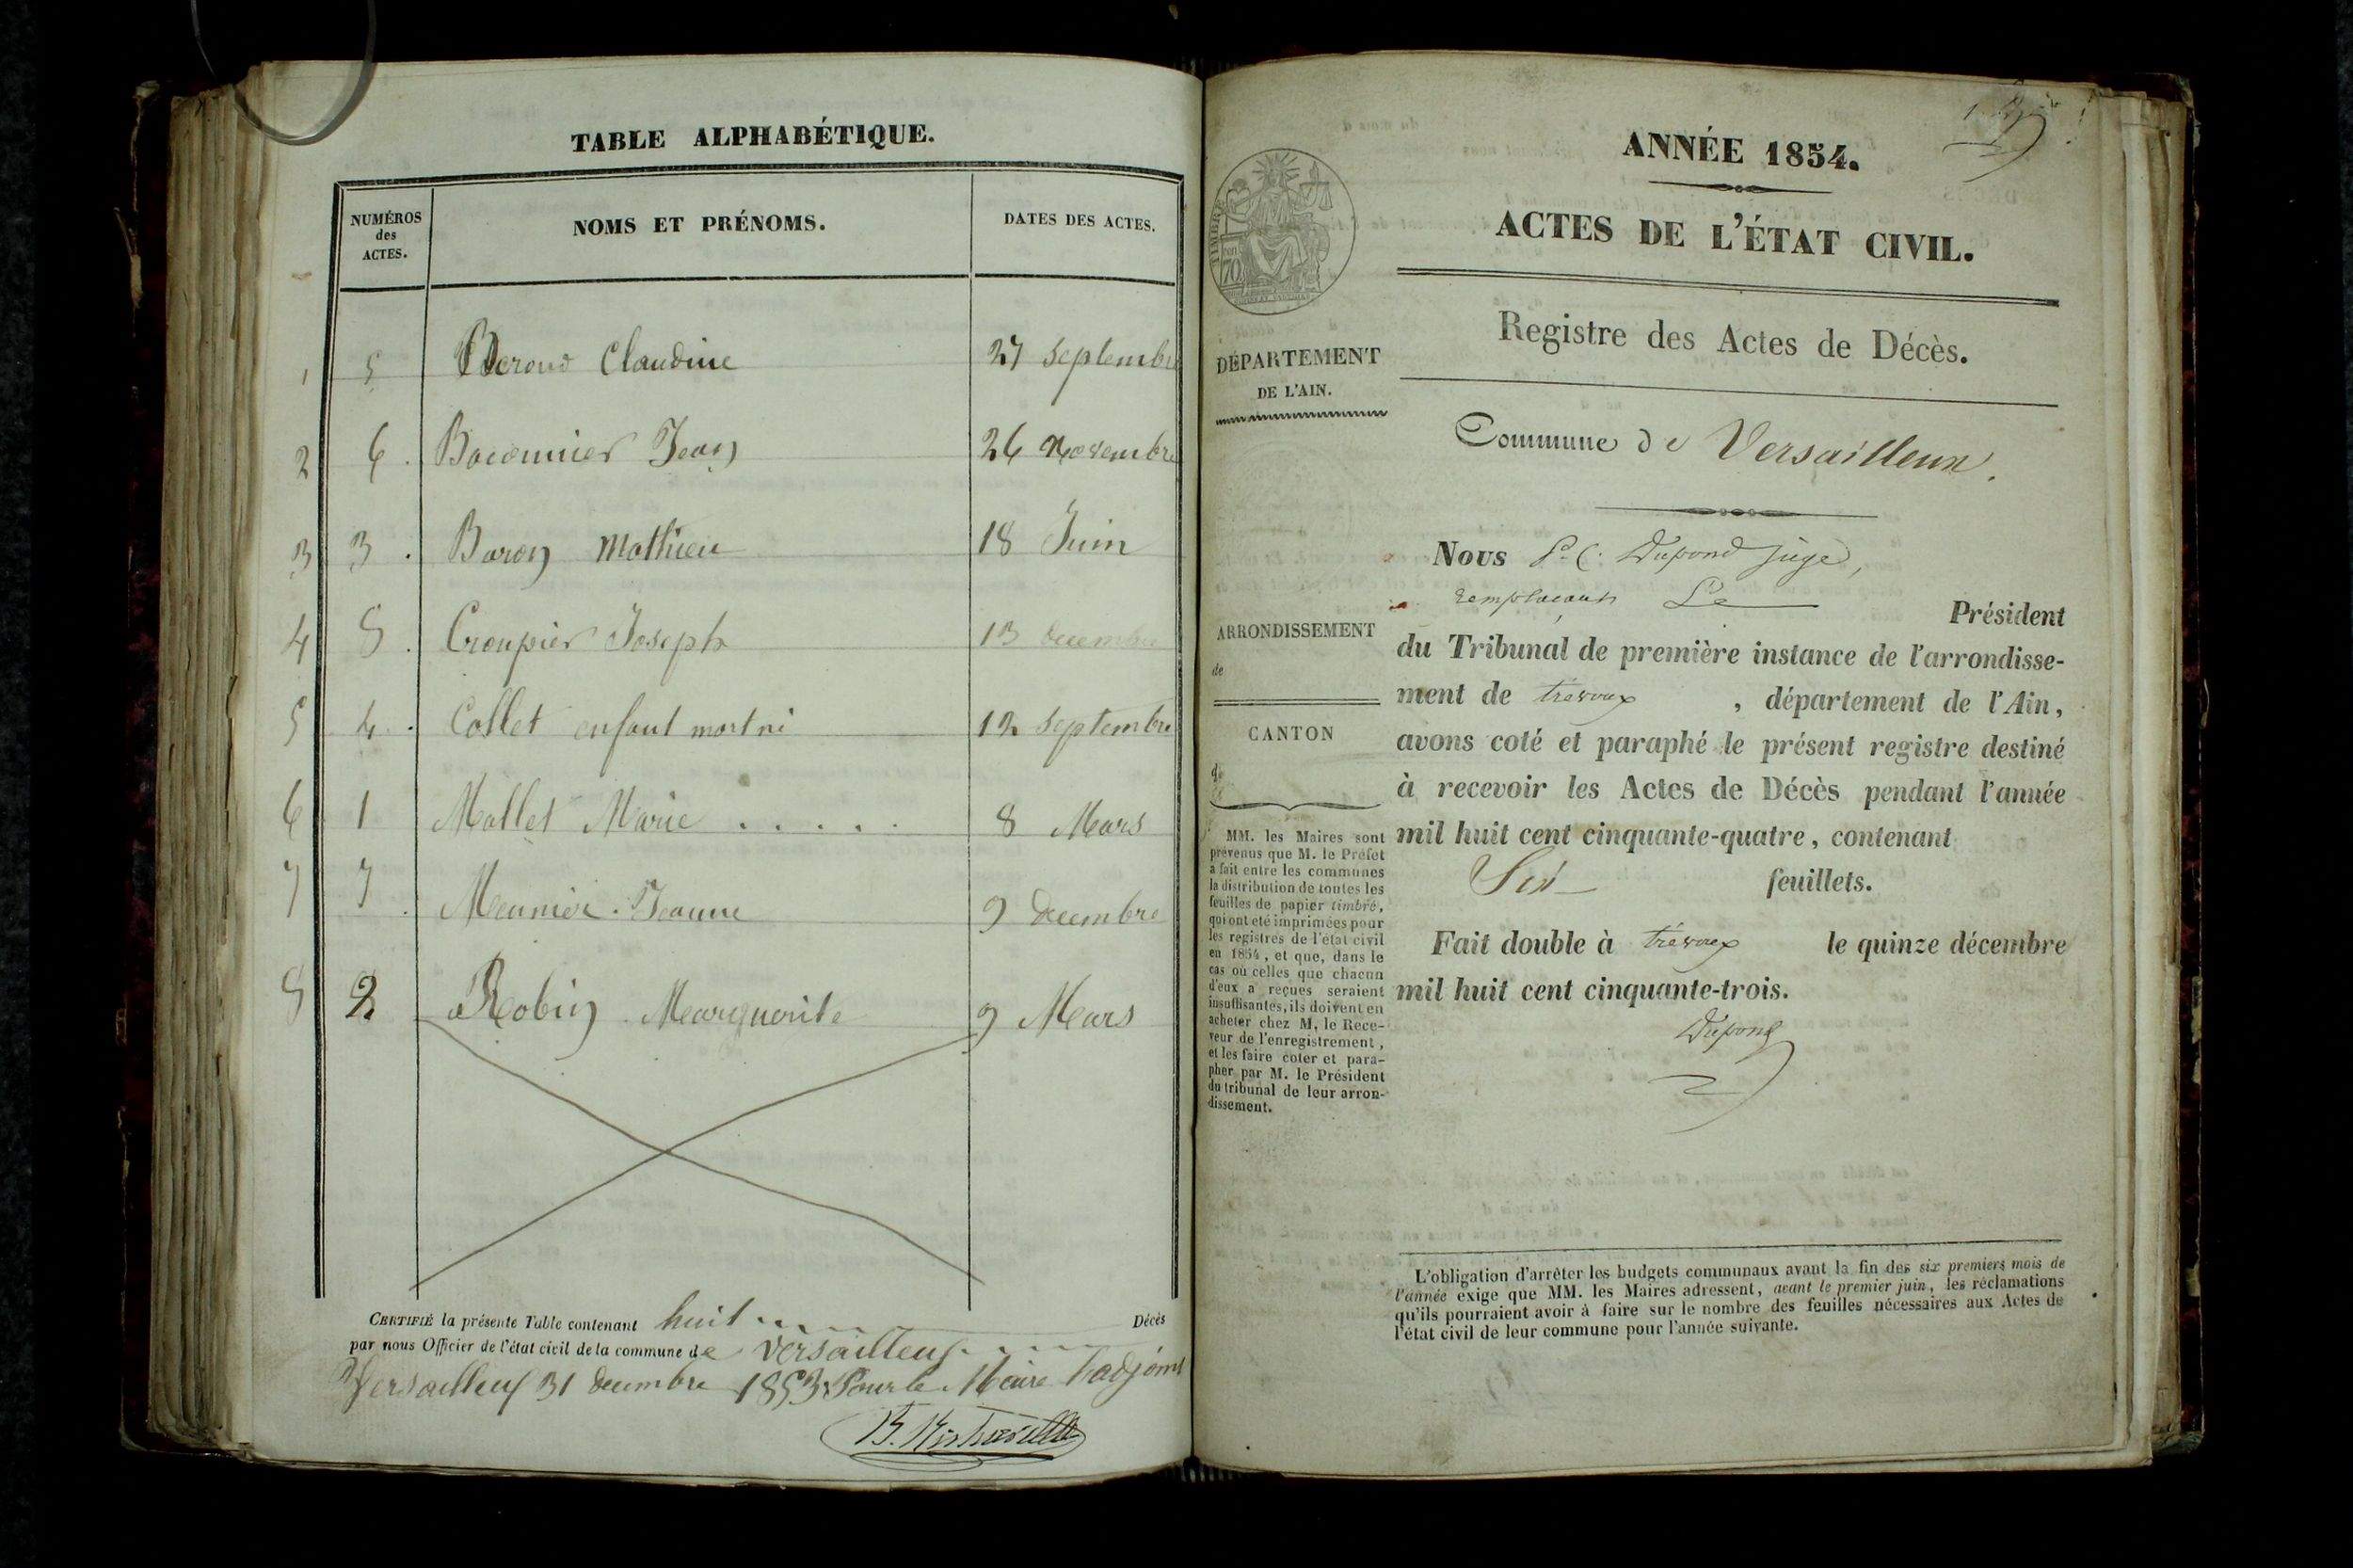 TABLE ALPHABÉTIQUE.
NUMÉROS des ACTES.
NOMS ET PRÉNOMS.
DATES DES ACTES.
1 5 Claudine 27 septembre
2 6 . Baconnier Jean 26 novembre
3 3 . Baron Mathieu 18 Juin
4 8 . Croupier Joseph 13 decembre
5 4 . Collet enfant mort né 12 septembre
6 1 Mallet Marie . . . . . 8 Mars
7 7 . Meunier Jeanne 9 decembre
8 2 Robin Marguerite 9 Mars
CERTIFIÉ la présente Table contenant huit Décès
par nous Officier de l'état civil de la commune de versailleux
Versailleux 31 decembre 1853 Pour le Maire l'adjoint
ANNÉE 1854.
ACTES DE L'ÉTAT CIVIL.
Registre des Actes de Décès.
Commune de Versailleux.
TIMBRE
70
DÉPARTEMENT
DE L'AIN.
ARRONDISSEMENT
de
CANTON
de
MM. les Maires sont
prévenus que M. le Préfet
a fait entre les communes
la distribution de toutes les
feuilles de papier timbré,
qui ont été imprimées pour
les registres de l'état civil
en 1854, et que, dans le
cas où celles que chacun
d'eux a reçues seraient
insuffisantes, ils doivent en
acheter chez M. le Rece-
veur de l'enregistrement,
et les faire coter et para-
pher par M. le Président
du tribunal de leur arron-
dissement.
Nous Dupond juge,
remplacant Le Président
du Tribunal de première instance de l'arrondisse-
ment de trévoux , département de l'Ain,
avons coté et paraphé le présent registre destiné
à recevoir les Actes de Décès pendant l'année
mil huit cent cinquante-quatre, contenant
Six feuillets.
Fait double à trévoux le quinze décembre
mil huit cent cinquante-trois.
Dupond
L'obligation d'arrêter les budgets communaux avant la fin des six premiers mois de
l'année exige que MM. les Maires adressent, avant le premier juin, les réclamations
qu'ils pourraient avoir à faire sur le nombre des feuilles nécessaires aux Actes de
l'état civil de leur commune pour l'année suivante.